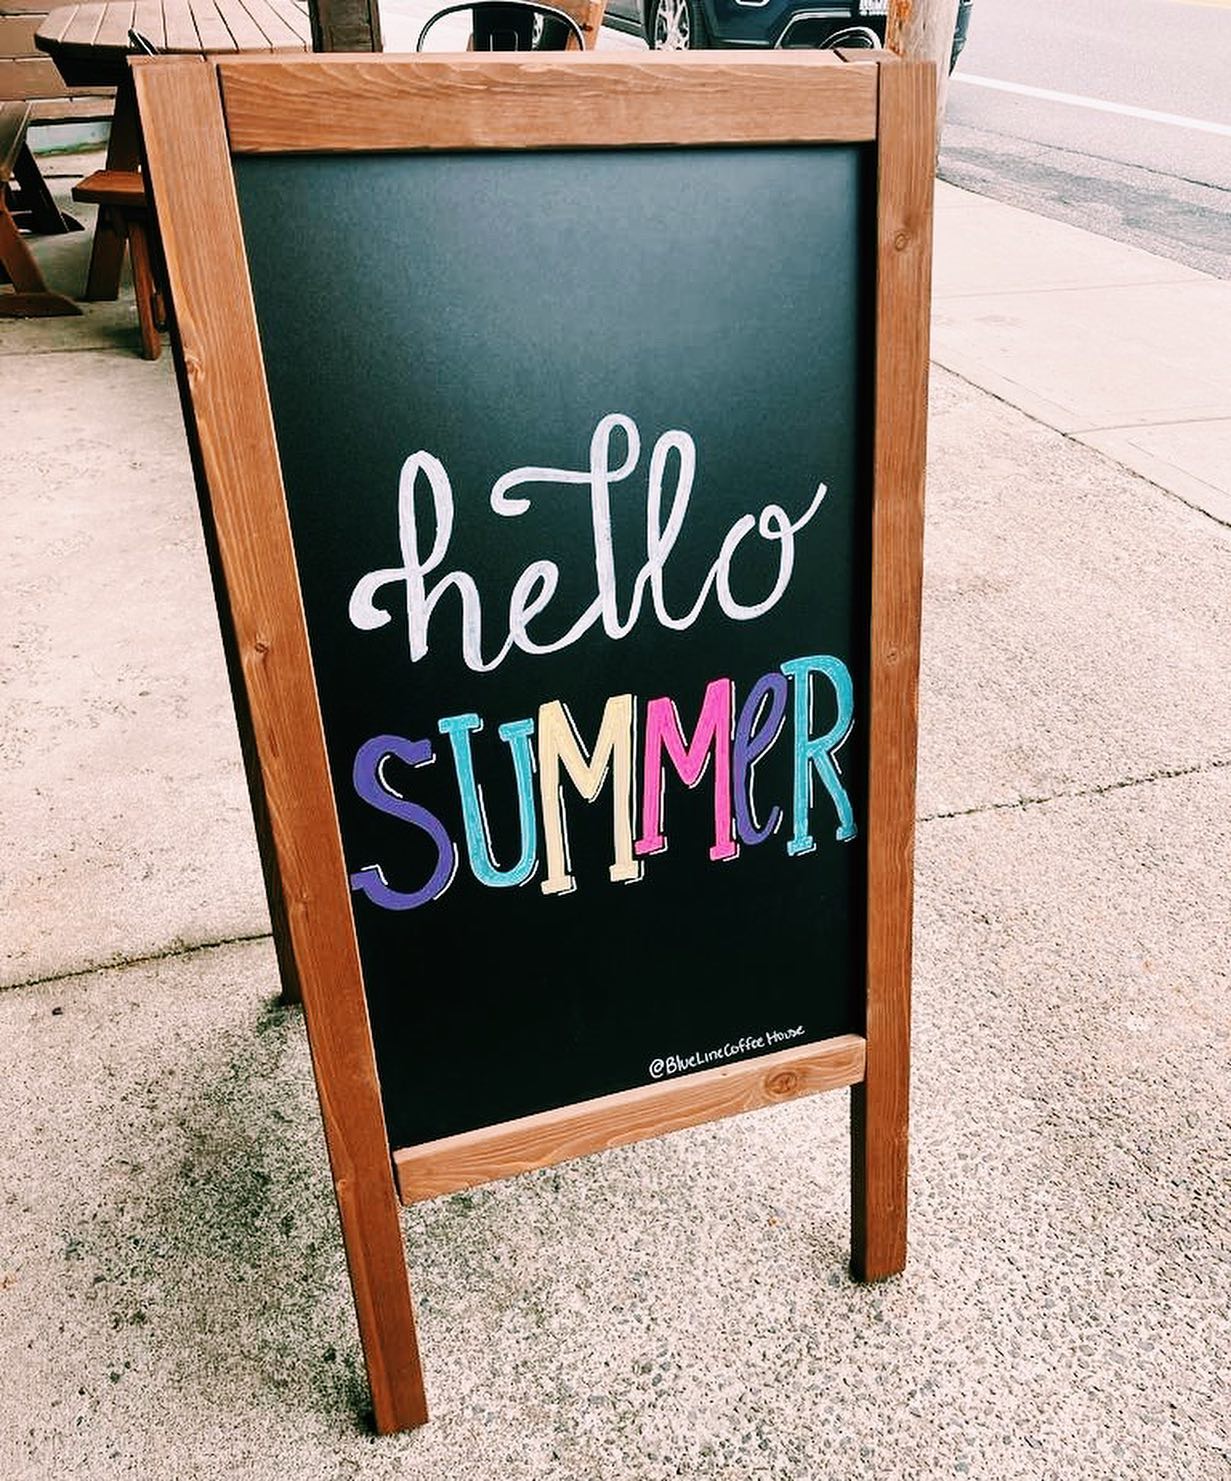 hello
SUMMeR
@BlueLineCoffeeHouse